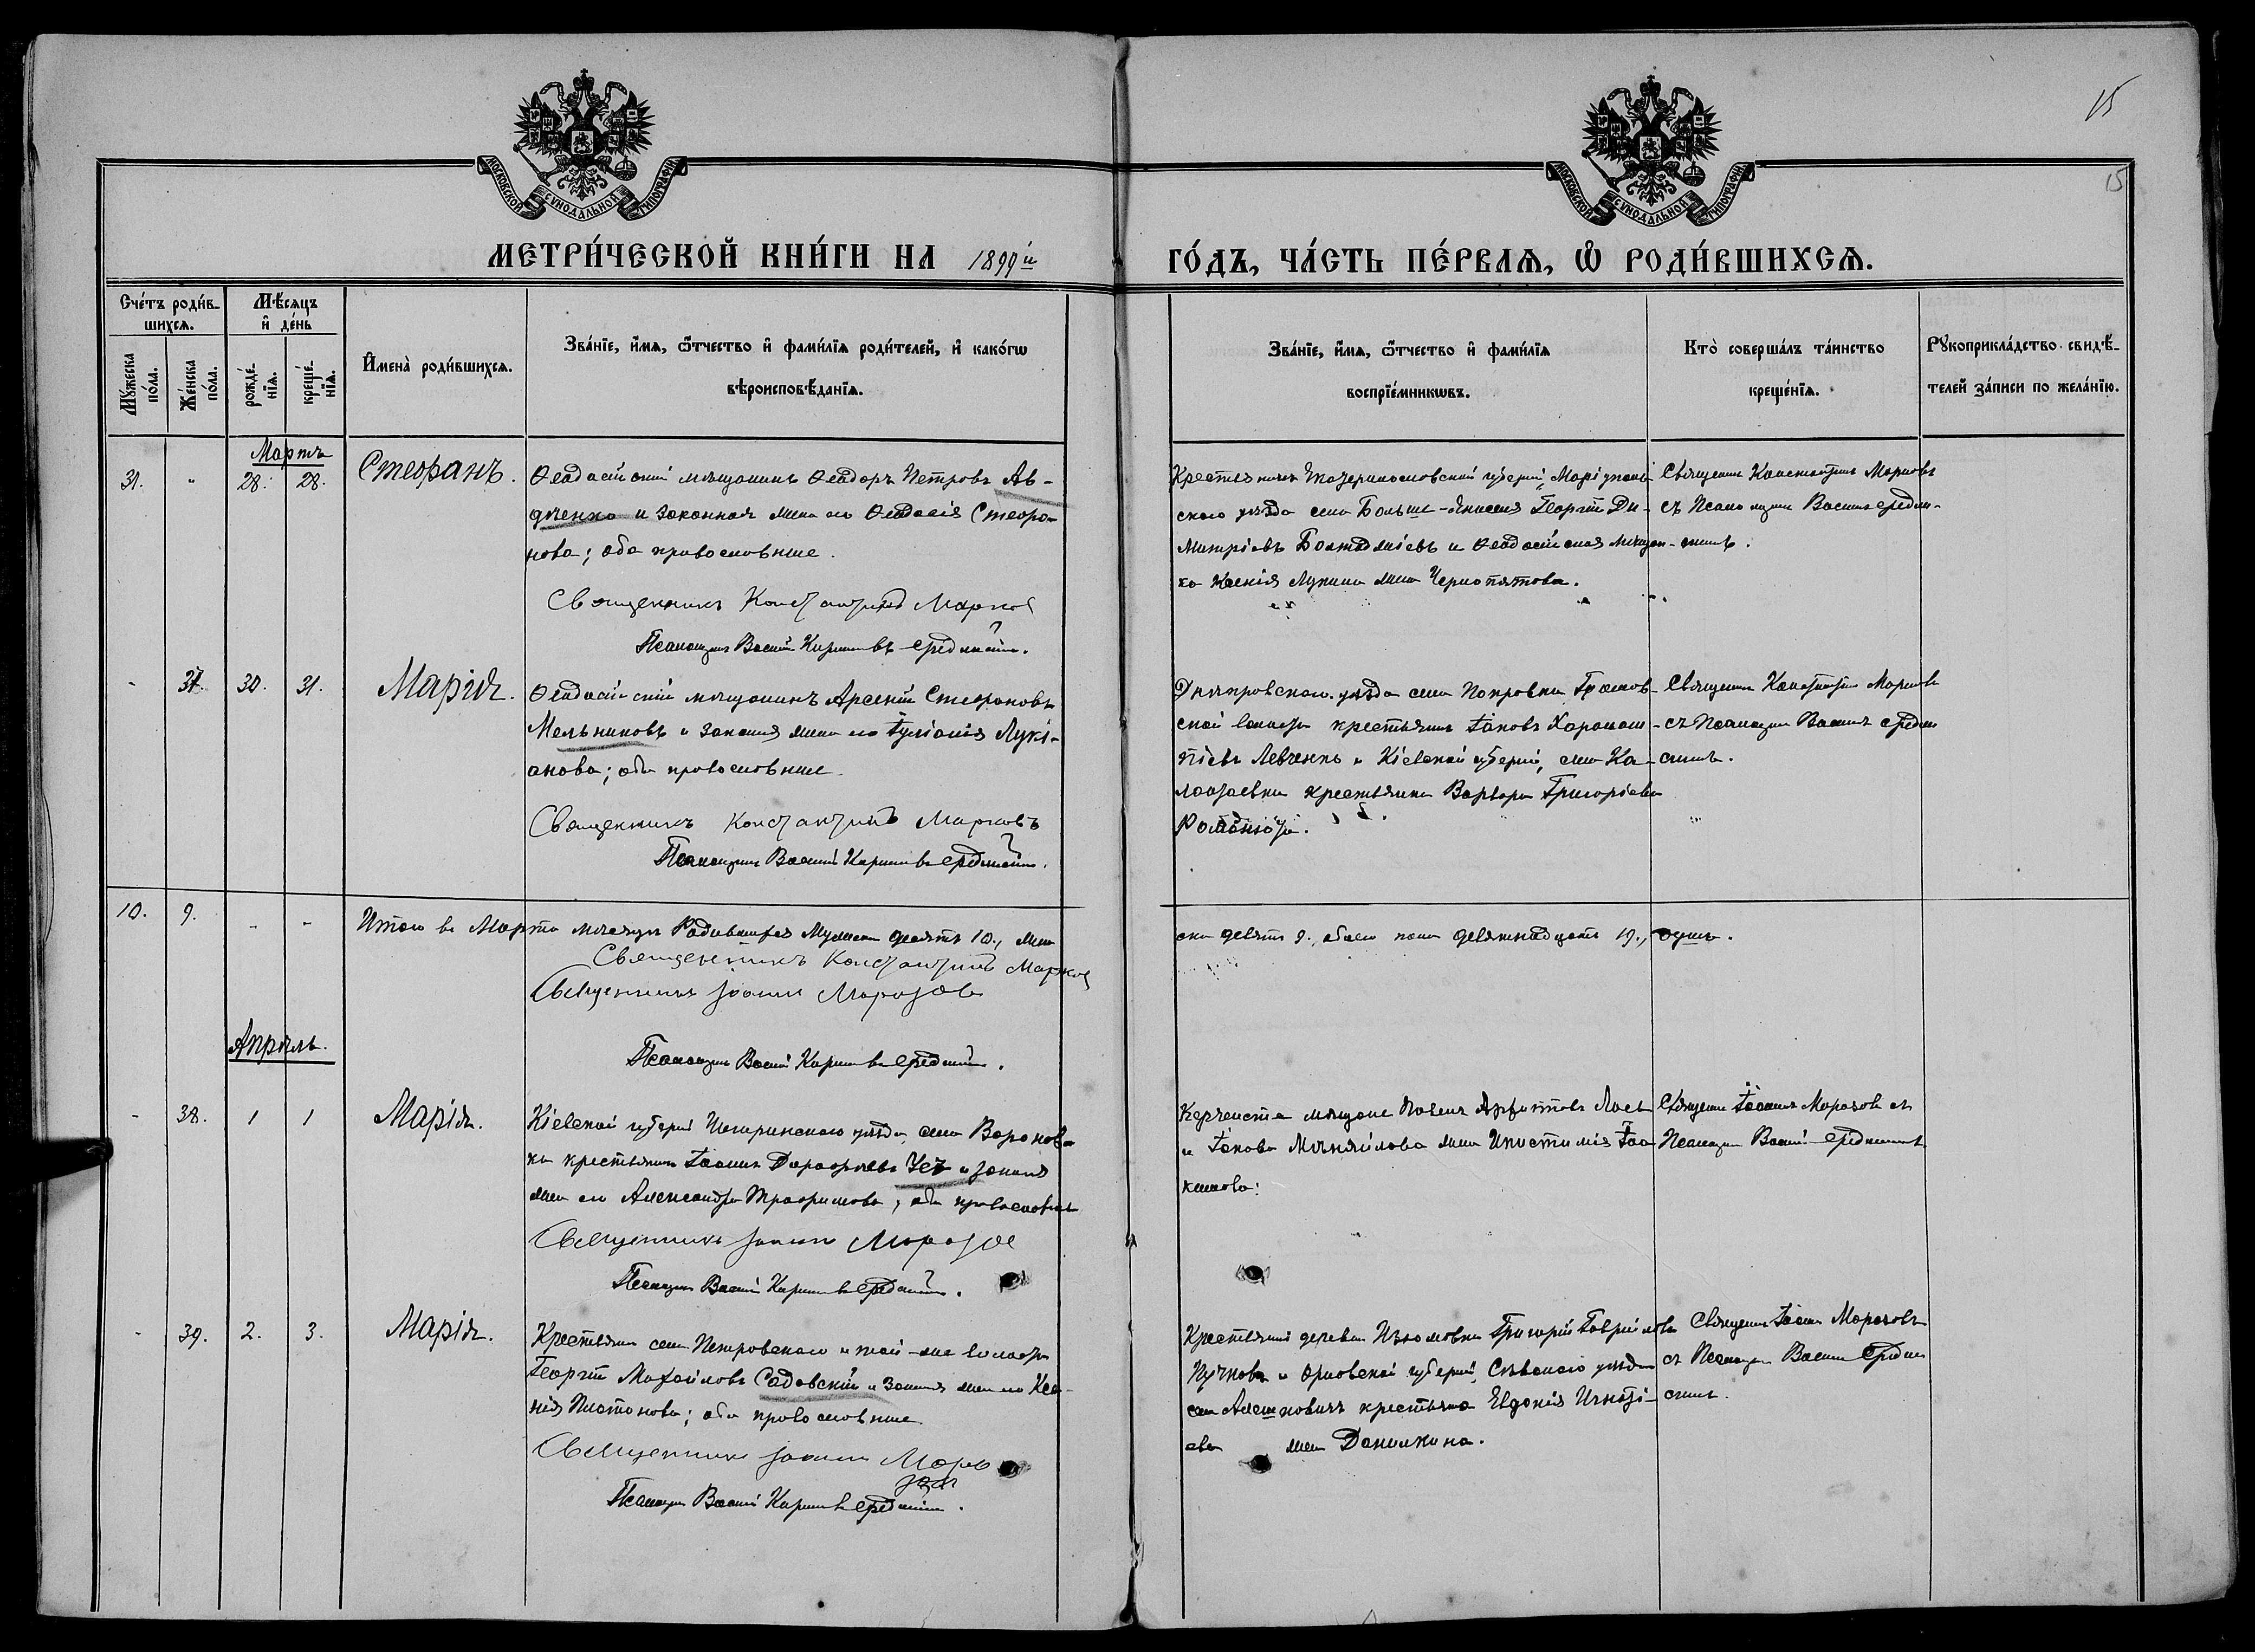 15
15
МОСКОВСКОЙ СУНОДАЛЬНОЙ ТИПОГРАФІИ
МОСКОВСКОЙ СУНОДАЛЬНОЙ ТИПОГРАФІИ
МЕТРИ́ЧЕСКОЙ КНИ́ГИ НА 1899й
ГО́ДЪ, ЧА́СТЬ ПЕ́РВАѦ, Ѡ҆ РОДИ́ВШИХСѦ.
Сче́тъ роди́в-
шихсѧ.
Мѣ́сѧцъ
и҆ де́нь
Мꙋ́жеска
по́ла.
Же́нска
по́ла.
рожде́-
нїѧ.
креще́-
нїѧ.
И҆мена̀ роди́вшихсѧ.
Зва́нїе, и҆́мѧ, ѻ҆́тчество и҆ фами́лїѧ роди́телей, и҆ како́гѡ
вѣроисповѣ́данїѧ.
Зва́нїе, и҆́мѧ, ѻ҆́тчество и҆ фами́лїѧ
воспрїе́мникѡвъ.
Кто̀ соверша́лъ та́инство
креще́нїѧ.
Рꙋкоприкла́дство свидѣ́-
телей за́писи по жела́нїю.
Мартъ
31. " 28. 28. Стефанъ.
Ѳеодосійскій мѣщанинъ Ѳеодоръ Петровъ Ав-
дѣенко и законная жена его Ѳеодосія Стефа-
нова; оба православные.
Священникъ Константинъ Марковъ
Псаломщикъ Василій Кирилловъ Срединскій.
Крестьянинъ Екатеринославской губерніи, Маріуполь
скаго уѣзда села Больше-Янисоля Георгій Ди-
митріевъ и Ѳеодосійская мѣщан-
ка Ксенія Лукина жена Чернопятова.
Священникъ Константинъ Марковъ
съ Псаломщик Василіем Средин-
скимъ.
- 37. 30. 31. Марія.
Ѳеодосійскій мѣщанинъ Арсеній Стефановъ
Мельниковъ и законная жена его Іуліанія Лукі-
анова; оба православные.
Священникъ Константинъ Марковъ
Псаломщикъ Василій Кирилловъ Срединскій.
Днѣпровскаго уѣзда села Покровки Громов-
ской волости крестьянинъ Іаковъ Харламп-
піевъ Левченко и Кіевской губерніи, села Ка-
крестьянка Варвара Григоріева
Священникъ Константинъ Марковъ
съ Псаломщик Василіем Средин
скимъ.
10. 9. - - Итого въ Мартѣ мѣсяцѣ Родившихся Мужеска десять 10., жен
ска девять 9., обоего пола девятнадцать 19., душъ.
Священникъ Константинъ Марковъ
Священникъ Іоаннъ Морозовъ
Псаломщикъ Василій Кирилловъ Срединскій.
Апрѣль.
- 38. 1 1 Марія.
Кіевской губерніи Чигиринскаго уѣзда, села Воронов-
ки крестьянинъ Іоаннъ Дорофѣевъ и законная
жена его Александра Трофимова; оба православные
Священникъ Іоаннъ Морозовъ
Псаломщикъ Василій Кирилловъ Срединскій.
мѣщане
и Іакова жена
Священникъ Іоаннъ Морозовъ съ
Псаломщик Василіем Средински
- 39. 2. 3. Марія.
Крестьянинъ села Петровскаго и той-же волости
Георгій Михайловъ Садовскій и законная жена его Ксе-
нія Платонова; оба православные
Священникъ Іоаннъ Моро
зовъ
Псаломщикъ Василій Кирилловъ Срединскій.
Крестьяне деревни Изюмовки Григорій Гавриловъ
Пучковъ и Орловской губерніи, Сѣвскаго уѣзда
села крестьянка Евдокія Игнаті-
ева жена Данилкина.
Священникъ Іоаннъ Морозовъ
съ Псаломщик Василіем Средин
скимъ.